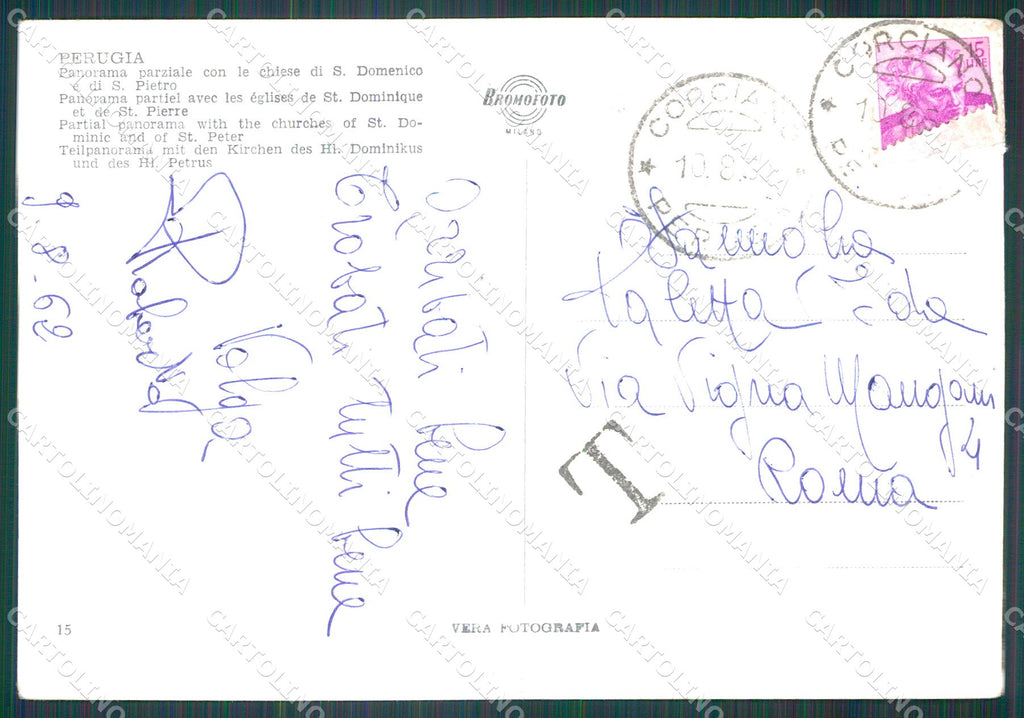 PERUGIA
Panorama parziale con le chiese di S. Domenico
e di S. Pietro
Panorama partiel avec les églises de St. Dominique
et de St. Pierre
Partial panorama with the churches of St. Do-
minic and of St. Peter
Teilpanorama mit den Kirchen des Hl. Dominikus
und des Hl. Petrus
BROMOFOTO
MILANO
CORCIANO
10.8.
CORCIANO
15
LIRE
9-8-62
bene
Trovati tutti bene
Valga
Via Vigna Mangani
4
Roma
T
15
VERA FOTOGRAFIA
CARTOLINOMANIA